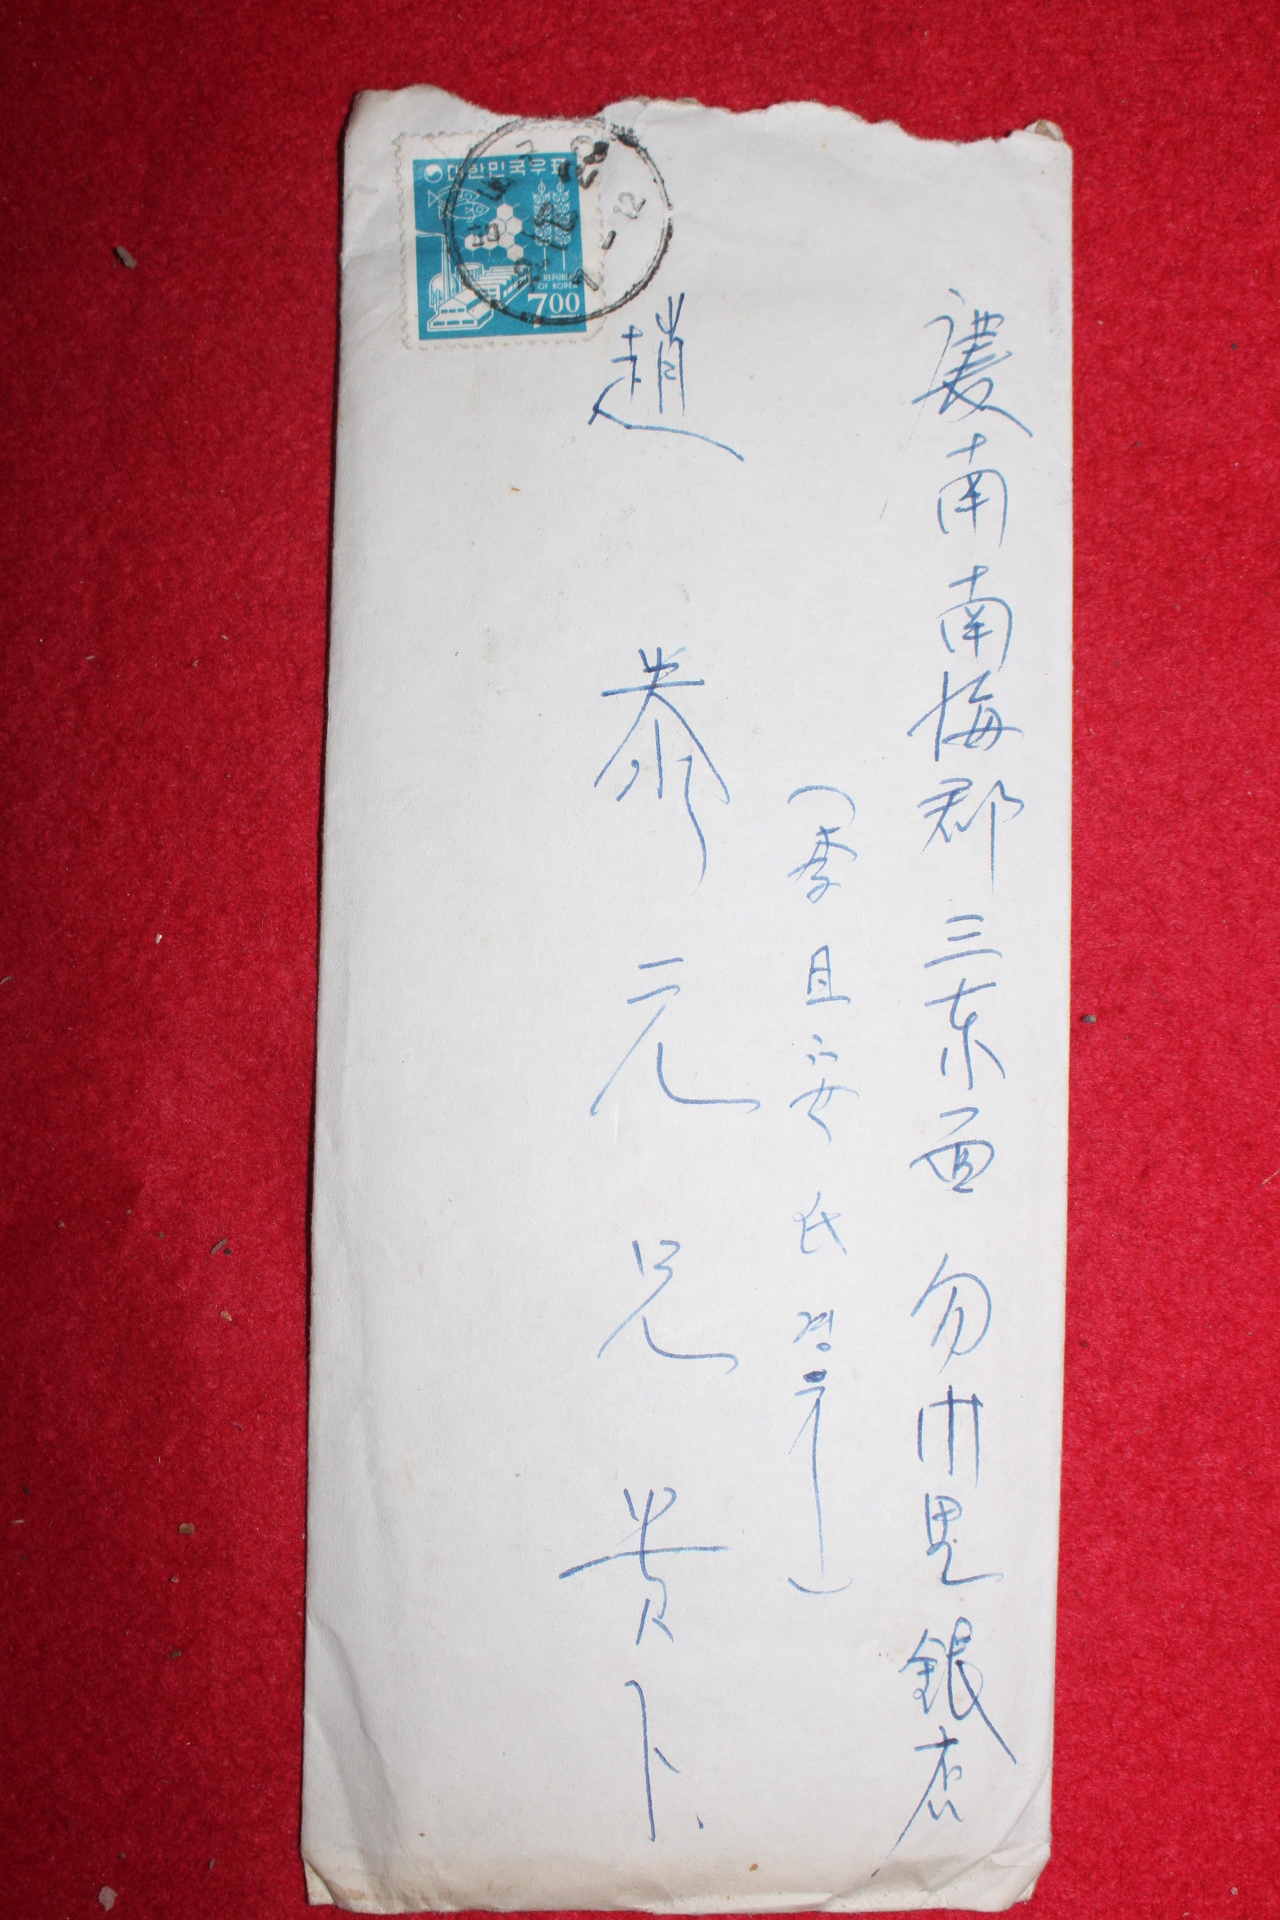 慶南南海郡三東面勿巾里銀店
(李且安氏경유)
趙泰元兄貴下
대한민국우표
REPUBLIC
OF KOREA
700